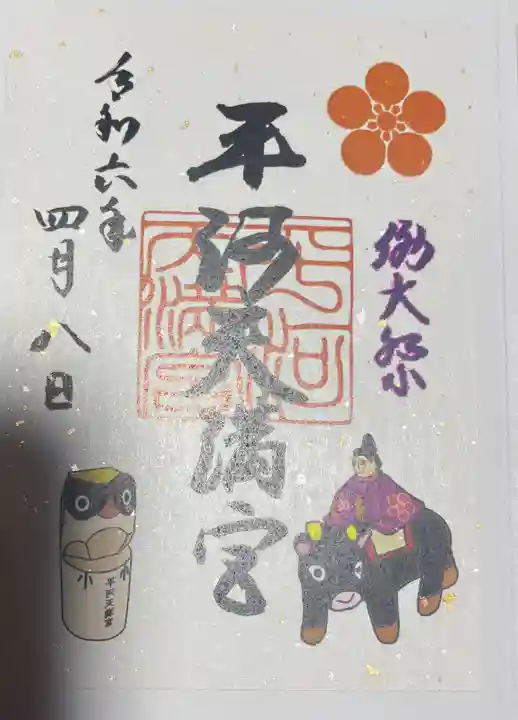 例大祭
平河天満宮
平河
天満宮
令和六年
四月八日
平河天満宮